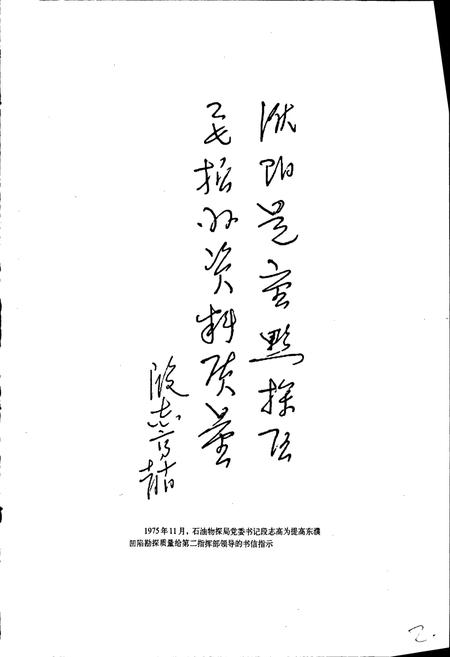 濮阳是重点探区
要 好资料质量
段志高
1975年11月，石油物探局党委书记段志高为提高东濮
凹陷勘探质量给第二指挥部领导的书信指示
2.